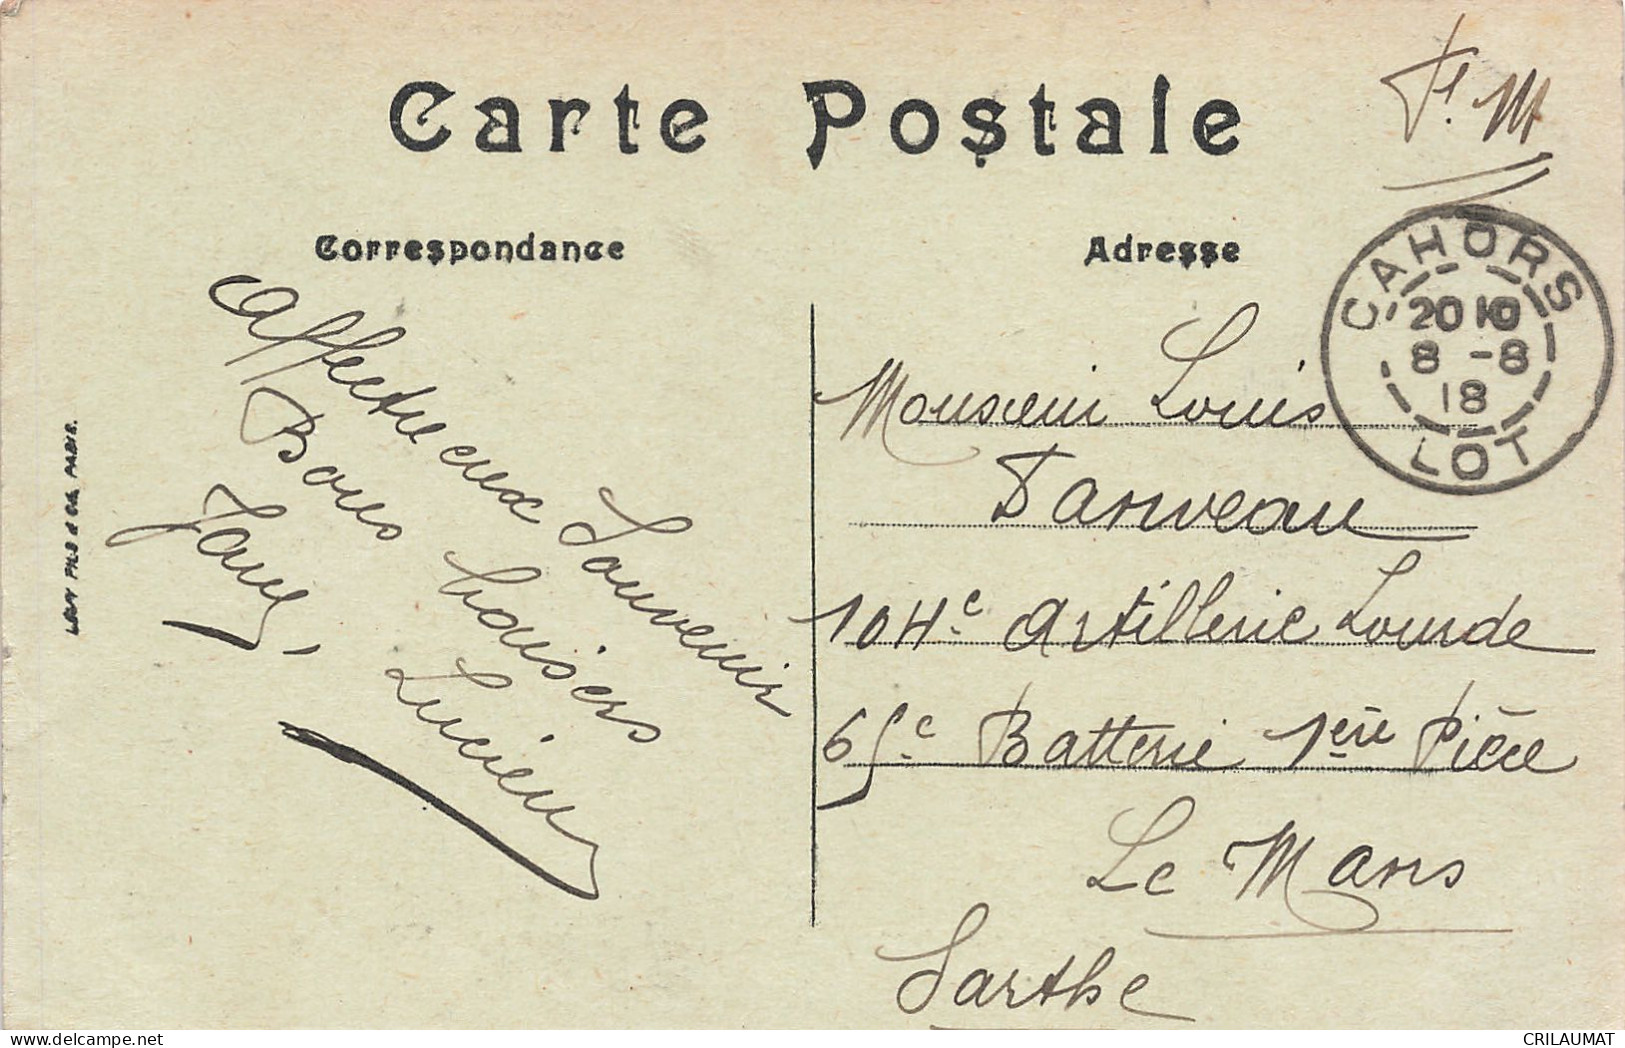 Carte Postale
F. M
Correspondance
Adresse
CAHORS
20 10
8 -8
18
LOT
Affectueux Souvenir
Bons baisers
Lucien
Monsieur Louis
Tanveau
104e Artillerie Lourde
65e Batterie 1ère Pièce
Le Mans
Sarthe
LEVY FILS & Cie, PARIS.
www.delcampe.net
CRILAUMAT